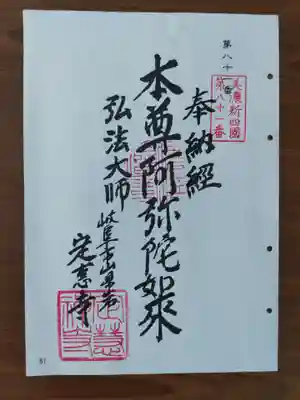 第八十一番
美濃新四國
第八十一番
奉納経
本尊阿弥陀如来
弘法大師
岐阜市山県岩
定恵寺
81